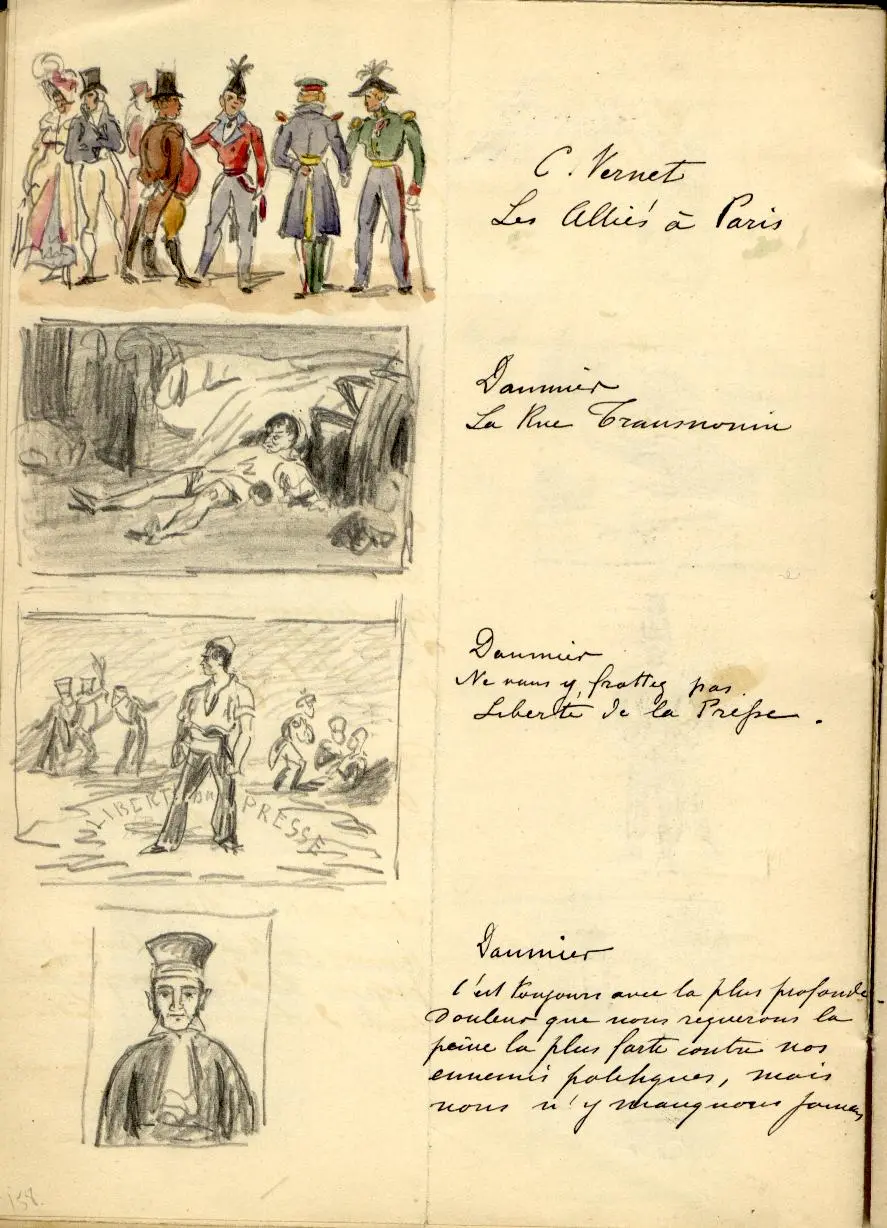 C. Vernet
Les Alliés à Paris
Daumier
La Rue Transnonin
Daumier
Ne vous y frottez pas.
Liberté de la Presse.
LIBERTE DE PRESSE
Daumier
C'est toujours avec la plus profonde
Douleur que nous requerons la
peine la plus forte contre nos
ennemis politiques, mais
nous n'y manquons jamais
158.